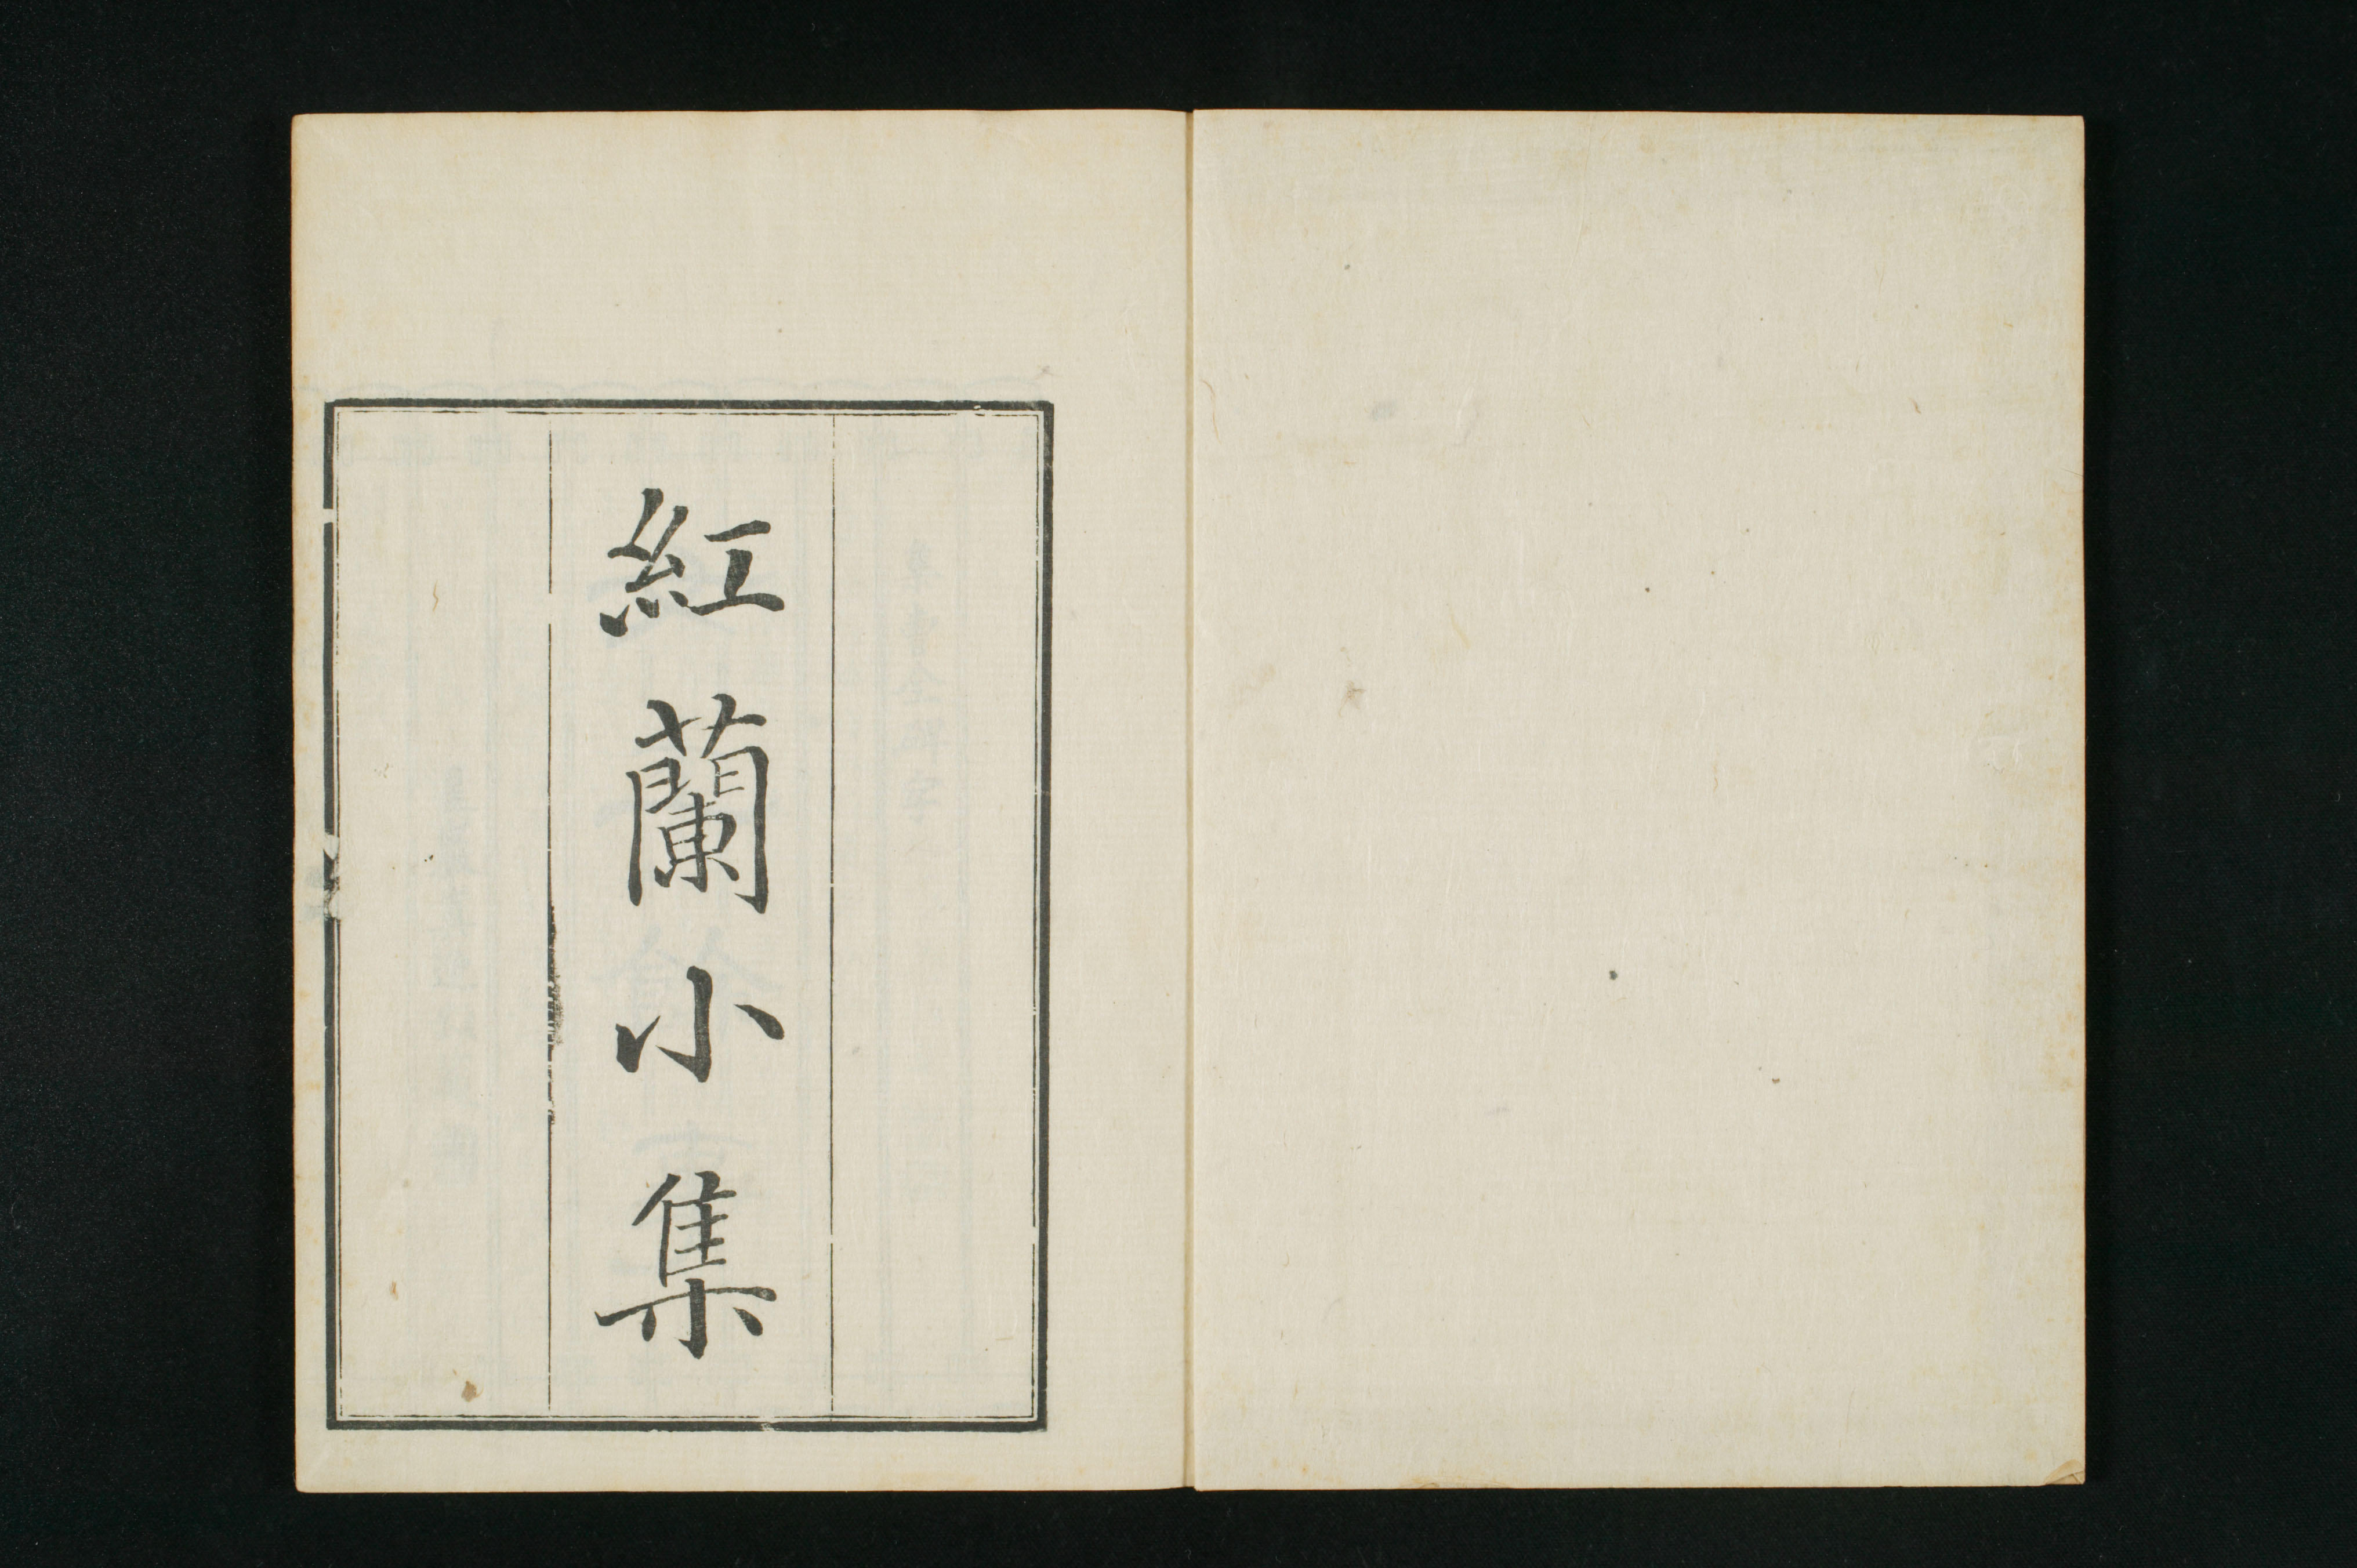 紅蘭小集